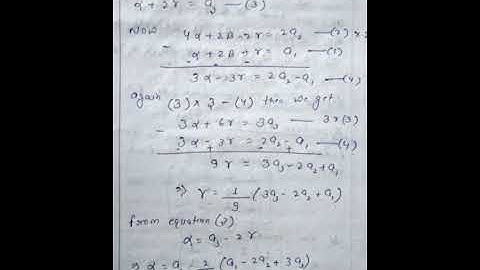 α + 2γ = a₃ — (3)
Now 4α + 2β - 2γ = 2a₂ — (2) × 2
- α + 2β + γ = a₁ — (1)
3α - 3γ = 2a₂ - a₁ — (4)
again (3) × 3 - (4) then we get
- 3α + 6γ = 3a₃ — 3×(3)
3α - 3γ = 2a₂ - a₁ — (4)
9γ = 3a₃ - 2a₂ + a₁
⇒ γ = 1/9 (3a₃ - 2a₂ + a₁)
from equation (3)
α = a₃ - 2γ
α = a₃ - 2/9 (a₁ - 2a₂ + 3a₃)